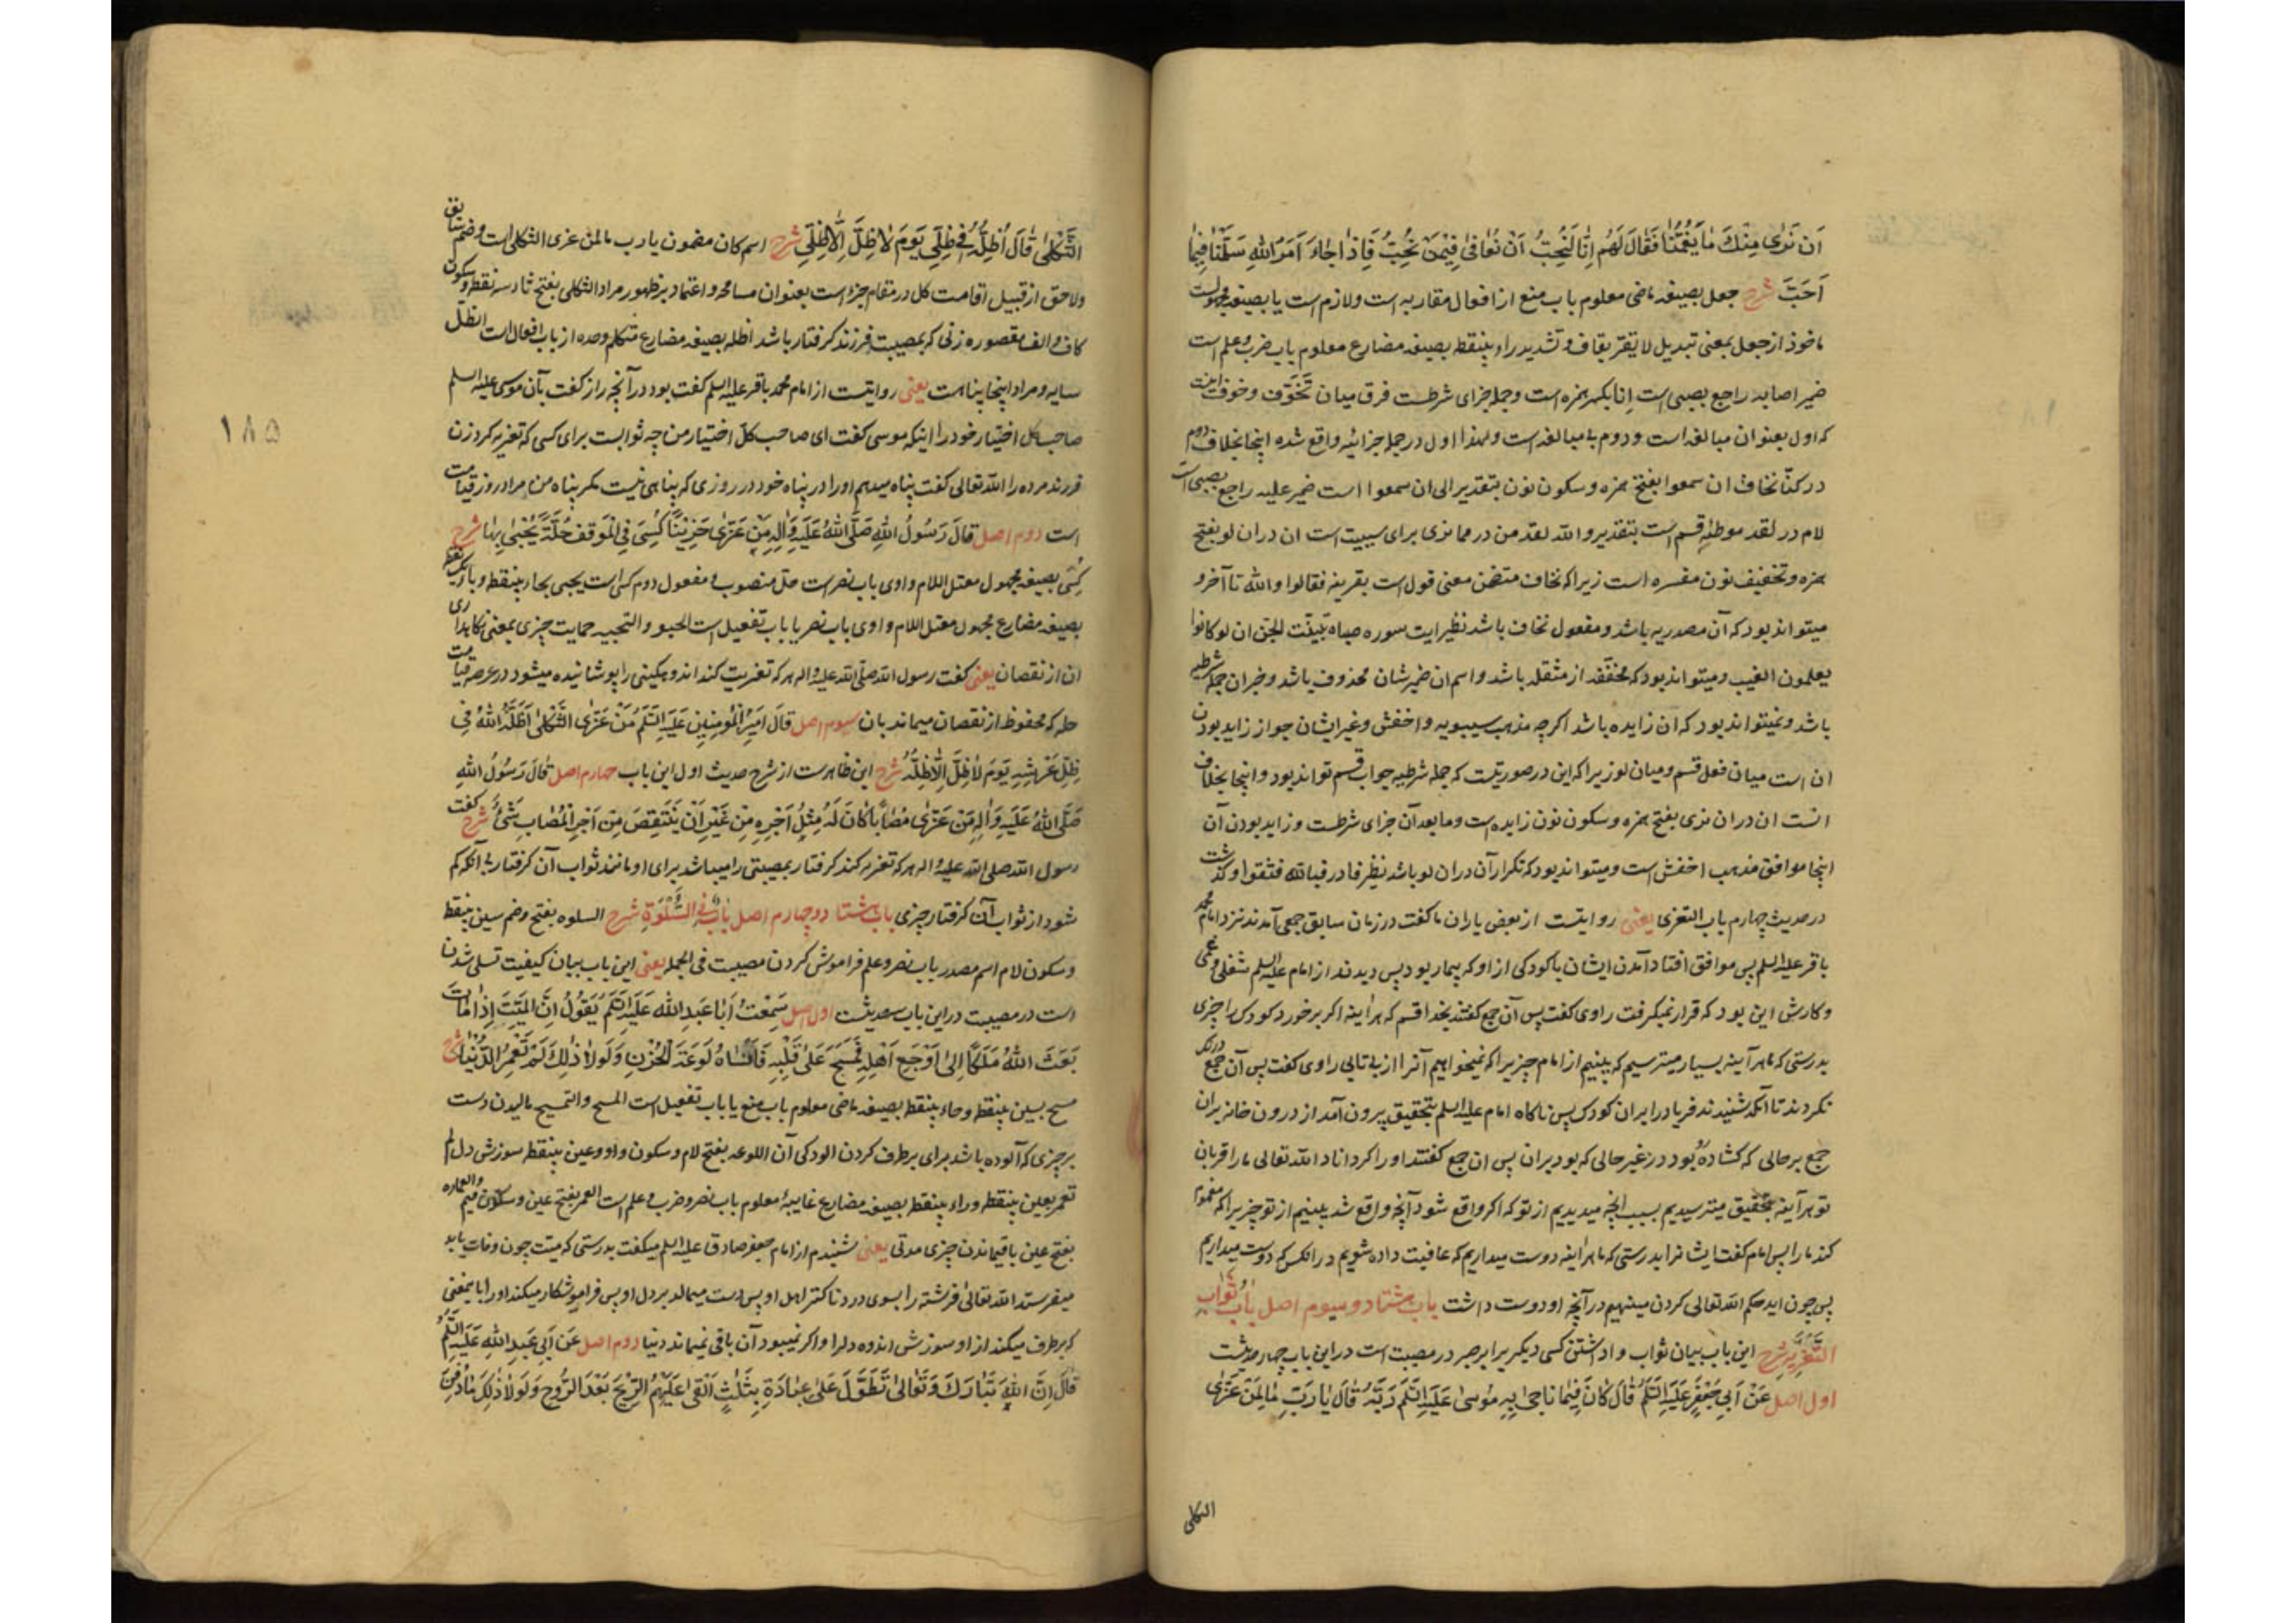 اَن نَرٰى مِنْكَ مٰا يَغُمُّنٰا فَقٰالَ لَهُم اِنّٰا لَنُحِبُّ اَنْ نُعٰافٰى فِيْمَنْ نُحِبُّ فَاِذٰا جٰاءَ اَمْرُ اللّٰهِ سَلَّمْنٰا فِيمٰا
اَحَبَّ شرح جعل بصیغه ماضی معلوم باب منع از افعال مقاربه است و لازم است یا بصیغه مجهولست
ماخوذ از جعل بمعنی تبدیل لا یقر بقاف و تشدید راء بینقطه بصیغه مضارع معلوم باب ضرب و علم است
ضمیر اصابه راجع بصبی است اِنا بکسر همزه است و جمله جزای شرطست فرق میان تَخَوَّف و خوف اینست
که اول بعنوان مبالغه است و دوم با مبالغه است و لهذا اول در جمله جزائیه واقع شده اینجا بخلاف دوم
در کنّا نخاف ان سمعوا بفتح همزه و سکون نون بتقدیر الی ان سمعوا است ضمیر علیه راجع بصبی است
لام در لقد موطئهٔ قسم است بتقدیر والله لقد من در مما نری برای سببیت است ان در ان لو بفتح
همزه و تخفیف نون مفسره است زیرا که نخاف متضمن معنی قول است بقرینه فقالوا والله تا آخر و
میتواند بود که آن مصدریه باشد و مفعول نخاف باشد نظیر ایت سوره سبا تَبَیَّنَت الجن ان لو کانوا
یعلمون الغیب و میتواند بود که مخفّفه از مثقله باشد و اسم ان ضمیر شان محذوف باشد و خبر ان جمله شرطیه
باشد و نمیتواند بود که ان زایده باشد اگرچه مذهب سیبویه و اخفش و غیر ایشان جواز زاید بودن
ان است میان فعل قسم و میان لو زیرا که این در صورتیست که جمله شرطیه جواب قسم تواند بود و اینجا بخلاف
انست ان در ان نری بفتح همزه و سکون نون زایده است و ما بعد آن جزای شرطست و زاید بودن آن
اینجا موافق مذهب اخفش است و میتواند بود که تکرار آن در ان لو باشد نظیر فا در فبالله فثقوا و گذشت
در حدیث چهارم باب التعزی یعنی روایتست از بعض یاران ما گفت در زمان سابق جمعی آمدند نزد امام محمد
باقر علیه السلم پس موافق افتاد آمدن ایشان با کودکی از او که بیمار بود پس دیدند از امام علیه السلم شغلی و غمی
و کارش این بود که قرار نمیگرفت راوی گفت پس آن جمع گفتند بخدا قسم که هر اینه اگر بر خورد کودک را چیزی
بدرستی که ما هر آینه بسیار میترسیم که ببینیم از امام چیزیرا که نمیخواهیم آنرا از بی تابی راوی گفت پس آن جمع درنگ
نکردند تا آنکه شنیدند فریاد را بر آن کودک پس ناگاه امام علیه السلم بتحقیق بیرون آمد از درون خانه بر آن
جمع بر حالی که گشاده رو بود در غیر حالی که بود بر ان پس ان جمع گفتند او را گرداناد الله تعالی ما را قربان
تو هر آینه بتحقیق میترسیدیم بسبب آنچه میدیدیم از تو که اگر واقع شود آنچه واقع شد ببینیم از تو چیزیرا که مغموم
کند ما را پس امام گفت ایشانرا بدرستی که ما هر اینه دوست میداریم که عافیت داده شویم در آنکس که دوست میداریم
پس چون اید حکم الله تعالی گردن مینهیم در آنچه او دوست داشت باب هشتاد و سیوم اصل بٰابُ ثَوٰابِ
التَّعْزِيَةِ شرح این باب بیان ثواب واداشتن کسی دیگر برابر صبر در مصیبت است در این باب چهار حدیثست
اول اصل عَنْ اَبِي جَعْفَرٍ عَلَيْهِ السَّلَمُ قٰالَ كٰانَ فِيمٰا نٰاجٰى بِهِ مُوسٰى عَلَيْهِ السَّلَمُ رَبَّهُ قٰالَ يٰا رَبِّ مٰا لِمَنْ عَزَّى
الثکلی
الثَّكْلٰى قٰالَ اُظِلُّهُ فِي ظِلِّي يَوْمَ لٰا ظِلَّ اِلَّا ظِلِّي شرح اسم کان مضمون یا رب ما لمن عزی الثکلی است و ضم سابق
و لاحق از قبیل اقامت کل در مقام جزء است بعنوان مسامحه و اعتماد بر ظهور مراد الثکلی بفتح ثاء سه نقطه و سکون
کاف و الف مقصوره زنی که بمصیبت فرزند گرفتار باشد اظله بصیغه مضارع متکلم وحده از باب افعال است الظلّ
سایه و مراد اینجا پناهست یعنی روایتست از امام محمد باقر علیه السلم گفت بود در آنچه راز گفت بآن موسی علیه السلم
صاحب کل اختیار خود را اینکه موسی گفت ای صاحب کلّ اختیار من چه ثوابست برای کسی که تعزیه کرد زن
فرزند مرده را الله تعالی گفت پناه میدهم او را در پناه خود در روزی که پناهی نیست مگر پناه من مراد روز قیامت
است دوم اصل قٰالَ رَسُولُ اللّٰهِ صَلَّى اللّٰهُ عَلَيْهِ وَاٰلِهِ مَنْ عَزّٰى حَزِيْنًا كُسِيَ فِي الْمَوْقِفِ حُلَّةً يُحْبٰى بِهٰا شرح
کُسی بصیغه مجهول معتل اللام واوی باب نصر است حلّه منصوب و مفعول دوم کسی است یحبی بحاء بینقطه و باء یکنقطه
بصیغه مضارع مجهول معتل اللام واوی باب نصر یا باب تفعیل است الحبو و التحبیه حمایت چیزی بمعنی نگاهداری
ان از نقصان یعنی گفت رسول الله صلّی الله علیه و اله هر که تعزیت کند اندوهگینی را پوشانیده میشود در عرصه قیامت
حله که محفوظ از نقصان میماند بان سیوم اصل قٰالَ اَمِيرُ الْمُؤْمِنِينَ عَلَيْهِ السَّلَمُ مَنْ عَزَّى الثَّكْلٰى اَظَلَّهُ اللّٰهُ فِي
ظِلِّ عَرْشِهِ يَوْمَ لٰا ظِلَّ اِلَّا ظِلُّهُ شرح این ظاهرست از شرح حدیث اول این باب چهارم اصل قٰالَ رَسُولُ اللّٰهِ
صَلَّى اللّٰهُ عَلَيْهِ وَاٰلِهِ مَنْ عَزّٰى مُصٰابًا كٰانَ لَهُ مِثْلُ اَجْرِهِ مِنْ غَيْرِ اَنْ يَنْتَقِصَ مِنْ اَجْرِ الْمُصٰابِ شَيْءٌ شرح گفت
رسول الله صلی الله علیه و اله هر که تعزیه کند گرفتار بمصیبتی را میباشد برای او مانند ثواب آن گرفتار بی آنکه کم
شود از ثواب آن گرفتار چیزی باب هشتاد و چهارم اصل بٰابٌ فِي السَّلْوَةِ شرح السلوه بفتح و ضم سین بینقطه
و سکون لام اسم مصدر باب نصر و علم فراموش کردن مصیبت فی الجمله یعنی این باب بیان کیفیت تسلی شدن
است در مصیبت در این باب سه حدیثست اول اصل سَمِعْتُ اَبٰا عَبْدِ اللّٰهِ عَلَيْهِ السَّلَمُ يَقُولُ اِنَّ الْمَيِّتَ اِذٰا مٰاتَ
بَعَثَ اللّٰهُ مَلَكًا اِلٰى اَوْجَعِ اَهْلِهِ فَمَسَحَ عَلٰى قَلْبِهِ فَاَنْسٰاهُ لَوْعَةَ الْحُزْنِ وَلَوْلٰا ذٰلِكَ لَمْ تَعْمُرِ الدُّنْيٰا شرح
مسح بسین بینقطه و حاء بینقطه بصیغه ماضی معلوم باب منع یا باب تفعیل است المسح و التمسیح مالیدن دست
بر چیزی که آلوده باشد برای برطرف کردن الودگی آن اللوعه بفتح لام و سکون واو و عین بینقطه سوزش دل لم
تعمر بعین بینقطه و راء بینقطه بصیغه مضارع غایبهٔ معلوم باب نصر و ضرب و علم است العمر بفتح عین و سکون میم و العماره
بفتح عین باقیماندن چیزی مدتی یعنی شنیدم از امام جعفر صادق علیه السلم میگفت بدرستی که میت چون وفات یابد
میفرستد الله تعالی فرشته را بسوی دردناکتر اهل او پس دست میمالد بر دل او پس فراموشکار میکند او را بایمعنی
که برطرف میکند از او سوزش اندوه دلرا و اگر نمیبود آن باقی نمیماند دنیا دوم اصل عَنْ اَبِي عَبْدِ اللّٰهِ عَلَيْهِ السَّلَمُ
قٰالَ اِنَّ اللّٰهَ تَبٰارَكَ وَتَعٰالٰى تَطَوَّلَ عَلٰى عِبٰادِهِ بِثَلٰثٍ اَلْقٰى عَلَيْهِمُ الرِّيْحَ بَعْدَ الرُّوحِ وَلَوْلٰا ذٰلِكَ مٰا دَفَنَ
۱۸۵